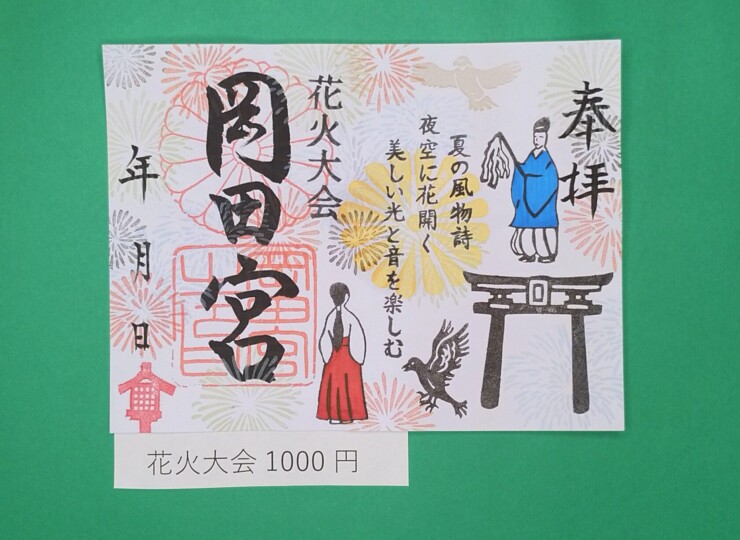 奉拝
夏の風物詩
夜空に花開く
美しい光と音を楽しむ
花火大会
岡田宮
年 月 日
花火大会 1000 円